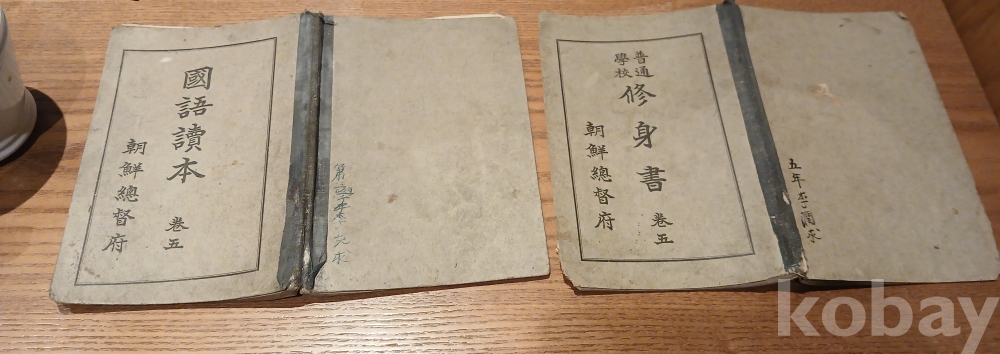 國語讀本
卷五
朝鮮總督府
普通
學校
修身書
卷五
朝鮮總督府
五年
kobay